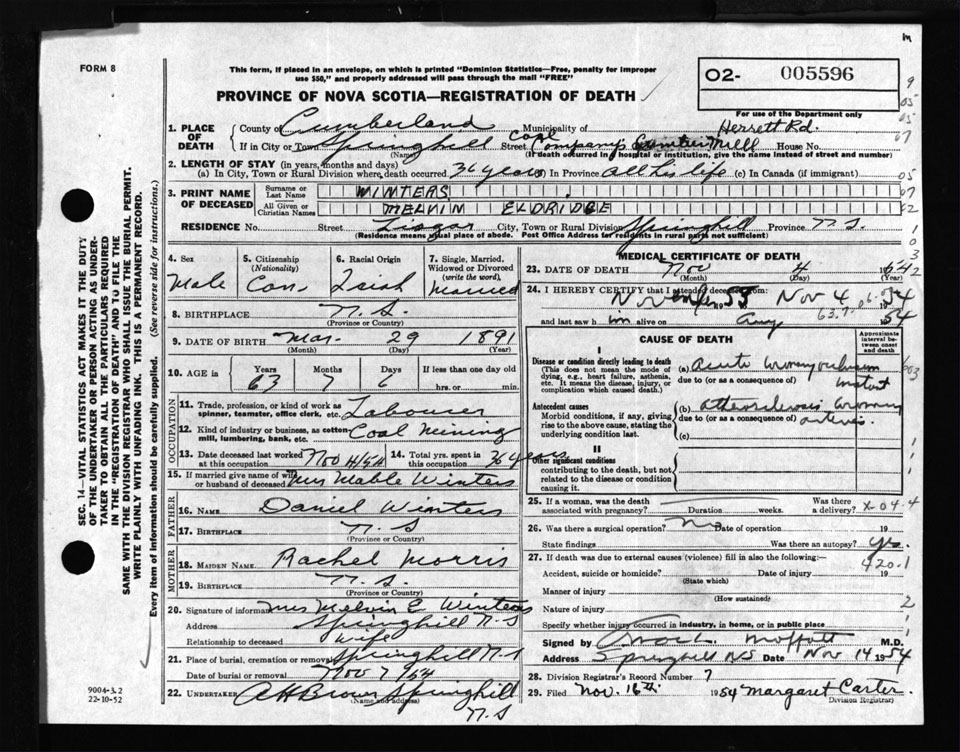 FORM 8
This form, if placed in an envelope, on which is printed "Dominion Statistics—Free, penalty for improper
use $50," and properly addressed will pass through the mail "FREE"
O2- 005596
For use of the Department only
PROVINCE OF NOVA SCOTIA—REGISTRATION OF DEATH
1. PLACE OF DEATH
County of Cumberland Municipality of Herrett Rd.
If in City or Town Springhill Street Coal Company's Mill House No.
(Name) (If death occurred in hospital or institution, give the name instead of street and number)
2. LENGTH OF STAY (in years, months and days)
(a) In City, Town or Rural Division where death occurred 36 years (b) In Province all his life (c) In Canada (if immigrant)
3. PRINT NAME OF DECEASED
Surname or Last Name WINTERS
All Given or Christian Names MELVIN ELDRIDGE
RESIDENCE No. Street Lisgar City, Town or Rural Division Springhill Province N.S.
(Residence means usual place of abode. Post Office Address for residents in rural parts not sufficient)
4. Sex Male
5. Citizenship (Nationality) Can.
6. Racial Origin Irish
7. Single, Married, Widowed or Divorced (write the word) Married
8. BIRTHPLACE N.S.
(Province or Country)
9. DATE OF BIRTH Mar. 29 1891
(Month) (Day) (Year)
10. AGE in Years 63 Months 7 Days 6 If less than one day old hrs. or min.
OCCUPATION
11. Trade, profession, or kind of work as spinner, teamster, office clerk, etc. Labourer
12. Kind of industry or business, as cotton-mill, lumbering, bank, etc. Coal Mining
13. Date deceased last worked at this occupation Nov 4/54
14. Total yrs. spent in this occupation 36 years
15. If married give name of wife or husband of deceased Mrs Mable Winters
FATHER
16. NAME Daniel Winters
17. BIRTHPLACE N.S
(Province or Country)
MOTHER
18. MAIDEN NAME Rachel Morris
19. BIRTHPLACE N.S.
(Province or Country)
20. Signature of informant Mrs Melvin E Winters
Address Springhill N-S
Relationship to deceased Wife
21. Place of burial, cremation or removal Springhill N.S
Date of burial or removal Nov 7/54
22. UNDERTAKER A H Brown Springhill
(Name and address)
N.S
MEDICAL CERTIFICATE OF DEATH
23. DATE OF DEATH Nov 4 1954
(Month) (Day) (Year)
24. I HEREBY CERTIFY that I attended deceased from:
Nov 4 1954
and last saw h im alive on Aug 1954
CAUSE OF DEATH
Approximate interval between onset and death
I
Disease or condition directly leading to death
(This does not mean the mode of dying, e.g., heart failure, asthenia, etc. It means the disease, injury, or complication which caused death)
(a) Acute coronary occlusion
due to (or as a consequence of) instant
Antecedent causes
Morbid conditions, if any, giving rise to the above cause, stating the underlying condition last.
(b) atherosclerosis coronary
due to (or as a consequence of) arteries.
(c)
II
Other significant conditions
contributing to the death, but not related to the disease or condition causing it.
25. If a woman, was the death associated with pregnancy? Duration weeks. Was there a delivery? X-04-4
26. Was there a surgical operation? No Date of operation 19
State findings Was there an autopsy? yes.
27. If death was due to external causes (violence) fill in also the following:— 420.1
Accident, suicide or homicide? Date of injury 19
(State which)
Manner of injury
(How sustained)
Nature of injury
Specify whether injury occurred in industry, in home, or in public place
Signed by Moffatt M.D.
Address Springhill NS Date Nov 14 1954
28. Division Registrar's Record Number 7
29. Filed Nov. 16th. 1954 Margaret Carter.
Division Registrar)
SEC. 14—VITAL STATISTICS ACT MAKES IT THE DUTY
OF THE UNDERTAKER OR PERSON ACTING AS UNDER-
TAKER TO OBTAIN ALL THE PARTICULARS REQUIRED
IN THE "REGISTRATION OF DEATH" AND TO FILE THE
SAME WITH THE DIVISION REGISTRAR WHO SHALL ISSUE THE BURIAL PERMIT.
WRITE PLAINLY WITH UNFADING INK. THIS IS A PERMANENT RECORD.
Every item of information should be carefully supplied. (See reverse side for instructions.)
9004-3.2
22-10-52